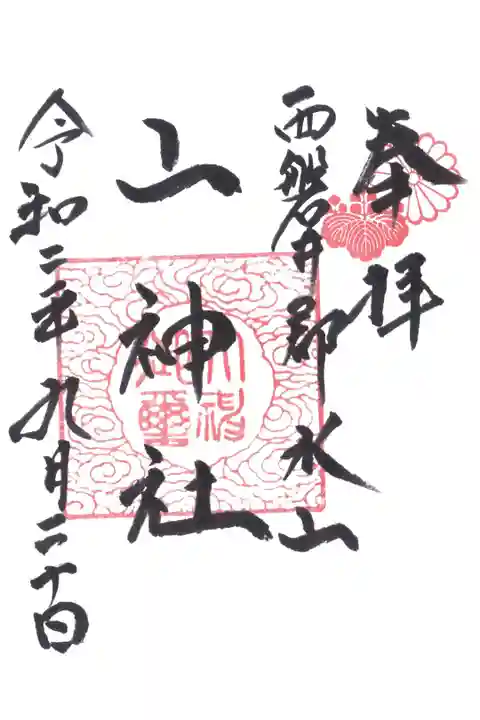 奉拝
西磐井郡 水山
山神社
令和二年九月二十日